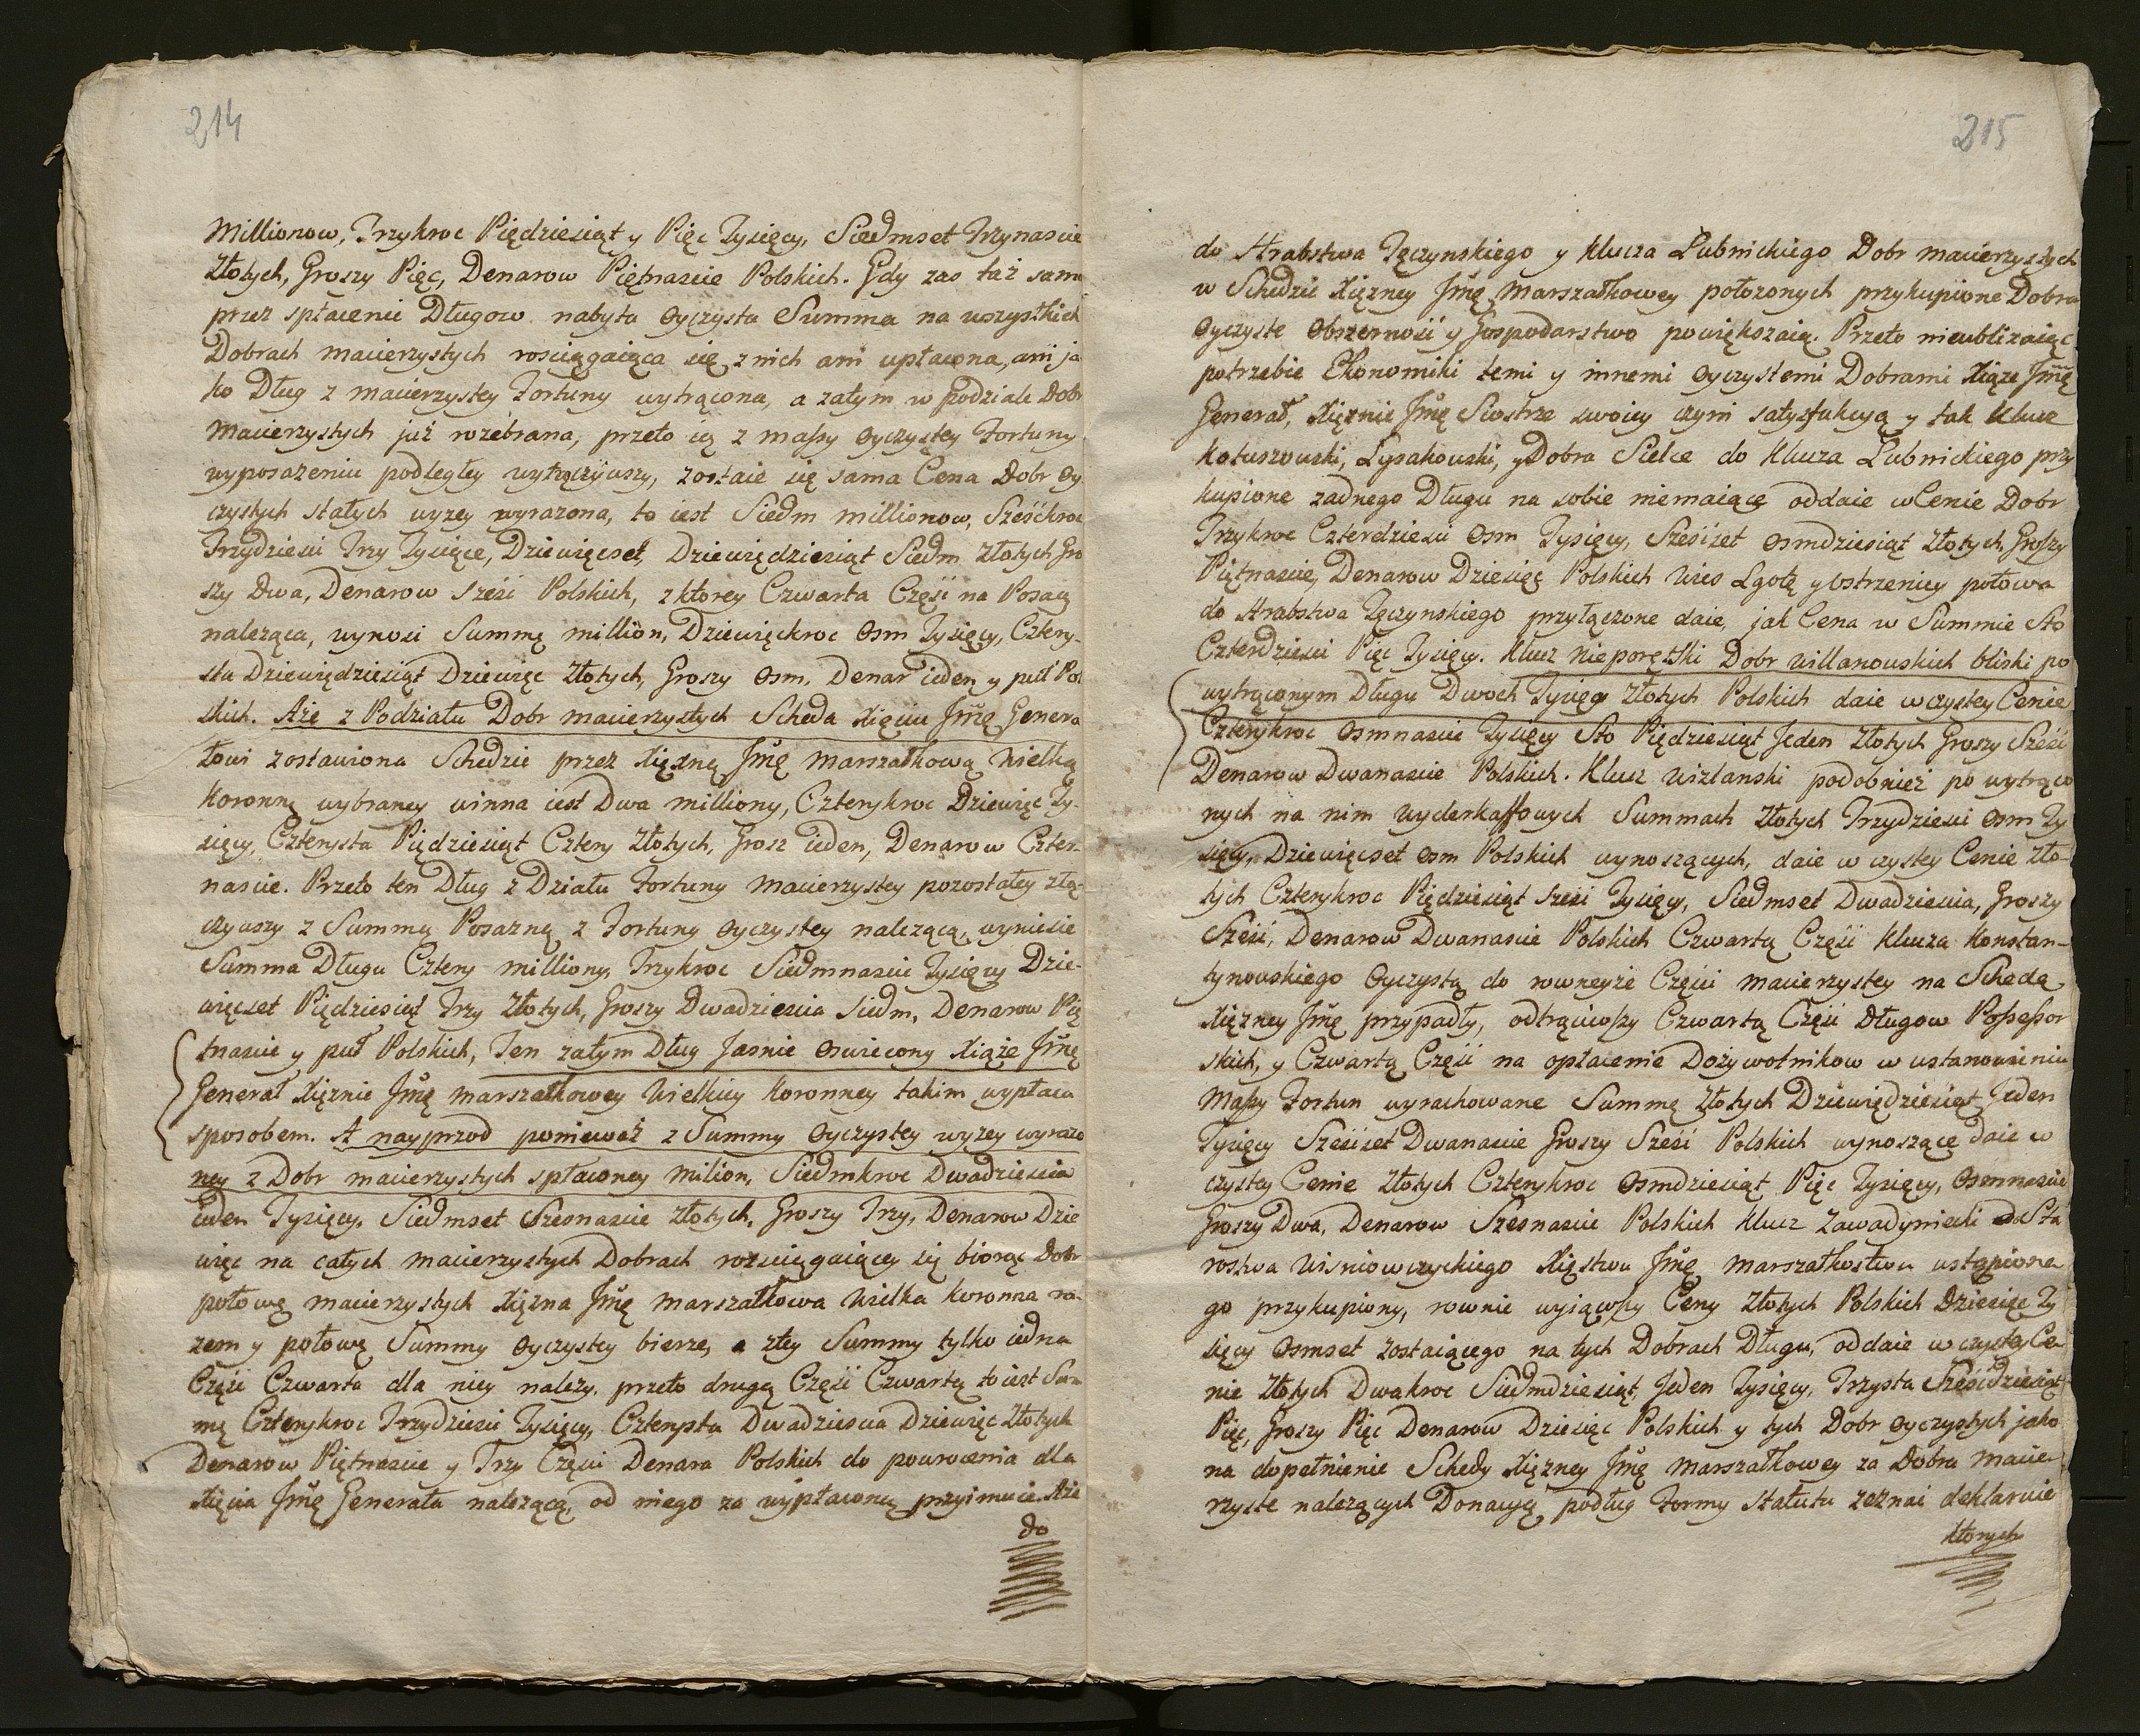 214
Millionow, Trzykroc Pięcdziesiąt y Pięc Tysięcy, Siedmset Trzynascie
Złotych, Groszy Pięc, Denarow Piętnascie Polskich. Gdy zas taż sama
przez spłacenie Długow nabyta Oyczysta Summa na wszystkich
Dobrach macierzystych rosciągaiąca się z nich ani upłacona, ani ja
ko Dług z macierzystey Fortuny wytrącona, a zatym w podziale Dobr
Macierzystych już rozebrana, przeto ią z massy Oyczystey Fortuny
wyposażeniu podległey wytrąciwszy, zostaie się sama Cena Dobr Oy
czystych stałych wyzey wyrazona, to iest Siedm millionow, Sześćkroc
Trzydziesci Trzy Tysiące, Dziewięcset, Dziewiędziesiąt Siedm Złotych, Gro
szy Dwa, Denarow Sześć Polskich, z ktorey Czwarta Część na Posag
naleząca, wynosi Summę million, Dziewięckroc Osm Tysięcy, Cztery-
sta Dziewiędziesiąt Dziewięc Złotych, Groszy Osm, Denar ieden y puł Pol
skich. Aże z Podziału Dobr macierzystych Scheda Xięciu Jmę Genera
łowi zostawiona Schedzie przez Xiężnę Jmę Marszałkową Wielką
Koronną wybraney winna iest Dwa milliony, Czterykroc Dziewięc Ty-
sięcy, Czterysta Pięcdziesiąt Cztery Złotych, Grosz ieden, Denarow Czter-
nascie. Przeto ten Dług z Działu Fortuny Macierzystey pozostałey złą-
czywszy z Summą Posazną z Fortuny Oyczystey nalezącą, wyniesie
Summa Długu Cztery milliony, Trzykroc Siedmnascie Tysięcy Dzie-
więcset Pięcdziesiąt Trzy Złotych, Groszy Dwadziescia Siedm, Denarow Pię
tnascie y puł Polskich, Ten zatym Dług Jasnie Oswiecony Xiąże Jmę
Generał Xięznie Jmę marszałkowey Wielkiey Koronney takim wypłaca
sposobem. A nayprzod ponieważ z Summy Oyczystey wyzey wyrazo
ney z Dobr macierzystych spłaconey Milion, Siedmkroc Dwadziescia
ieden Tysięcy, Siedmset Szesnascie Złotych, Groszy Trzy, Denarow Dzie
więc na całych macierzystych Dobrach rozsciągaiącey się biorąc Dobr
połowę macierzystych Xięzna Jmę Marszałkowa Wielka Koronna ra-
zem y połowę Summy Oyczystey bierze, a z tey Summy tylko iedna
Część Czwarta dla niey nalezy, przeto drugą Część Czwartą to iest Sum
mę Czterykroc Trzydziesci Tysięcy, Czterysta Dwadziescia Dziewięc Złotych
Denarow Piętnascie y Trzy Częsci Denara Polskich do powrocenia dla
Xięcia Jmę Generała nalezącą, od niego za wypłaconą przyimuie. Aże
do
215
do Hrabstwa Tęczynskiego y Klucza Lubnickiego Dobr macierzystych
w Schedzie Xięzney Jmę Marszałkowey położonych przykupione Dobra
Oyczyste Obszernosć y Gospodarstwo powiększaią. Przeto nieubliżaiąc
potrzebie Ekonomiki temi y innemi Oyczystemi Dobrami Xiąze Jmę
Generał, Xięznie Jmę Siostrze swoiey czyni satysfakcyą y tak Klucz
Kotuszowski, Lysakowski, y Dobra Sielce do Klucza Lubnickiego przy
kupione zadnego Długu na sobie niemaiące oddaie w Cenie Dobr
Trzykroc Czterdziesci Osm Tysięcy, Sześćset Osmdziesiąt Złotych, Groszy
Piętnascie, Denarow Dziesięć Polskich Wies Lgotę y Ostrzeniey połowa
do Hrabstwa Tęczynskiego przyłączone daie, jak Cena w Summie Sto
Czterdziesci Pięc Tysięcy. Klucz Nieporętski Dobr Willanowskich bliski po
wytrąconym Długu Dwoch Tysięcy Złotych Polskich daie w czystey Cenie
Czterykroc Osmnascie Tysięcy Sto Pięcdziesiąt Jeden Złotych Groszy Sześć
Denarow Dwanascie Polskich. Klucz Wizłanski podobnież po wytrąco
nych na nim Wyderkaffowych Summach Złotych Trzydziesci Osm Ty
sięcy, Dziewięcset Osm Polskich wynoszących, daie w czystey Cenie Zło-
tych Czterykroc Pięcdziesiąt Sześć Tysięcy, Siedmset Dwadziescia, Groszy
Sześć, Denarow Dwanascie Polskich Czwartą Część Klucza Konstan-
tynowskiego Oyczystą do rowneyże Częsci macierzystey na Schedę
Xięzney Jmę przypadły, odtrąciwszy Czwartą Część Długow Possessor
skich, y Czwartą Część na opłacenie Dożywotnikow w ustanowieniu
Massy Fortun wyrachowane Summę Złotych Dziewiędziesiąt Jeden
Tysięcy Sześćset Dwanascie Groszy Sześć Polskich wynoszące daie w
czystey Cenie Złotych Czterykroc Osmdziesiąt Pięc Tysięcy, Osmnascie
Groszy Dwa, Denarow Szesnascie Polskich Klucz Zawadyniecki do Sta
rostwa Wisniowczyckiego Xięstwu Jmę Marszałkostwu ustąpione
go przykupiony, rownie wyiąwszy Ceny Złotych Polskich Dziesięc Ty
sięcy Osmset zostaiącego na tych Dobrach Długu, oddaie w czystey Ce
nie Złotych Dwakroc Siedmdziesiąt Jeden Tysięcy, Trzysta Sześćdziesiąt
Pięc, Groszy Pięc Denarow Dziesięc Polskich y tych Dobr Oyczystych jako
na dopełnienie Schedy Xięzney Jmę Marszałkowey za Dobra Macie-
rzyste nalezących Donacyą podług Formy Statutu zeznać deklaruie
ktorych